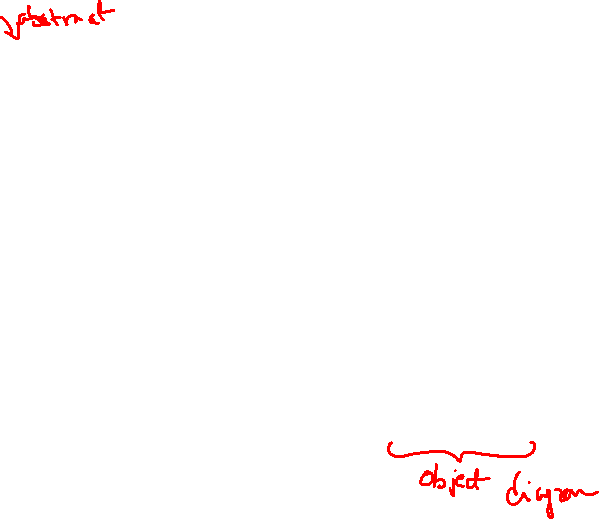 abstract
object diagram